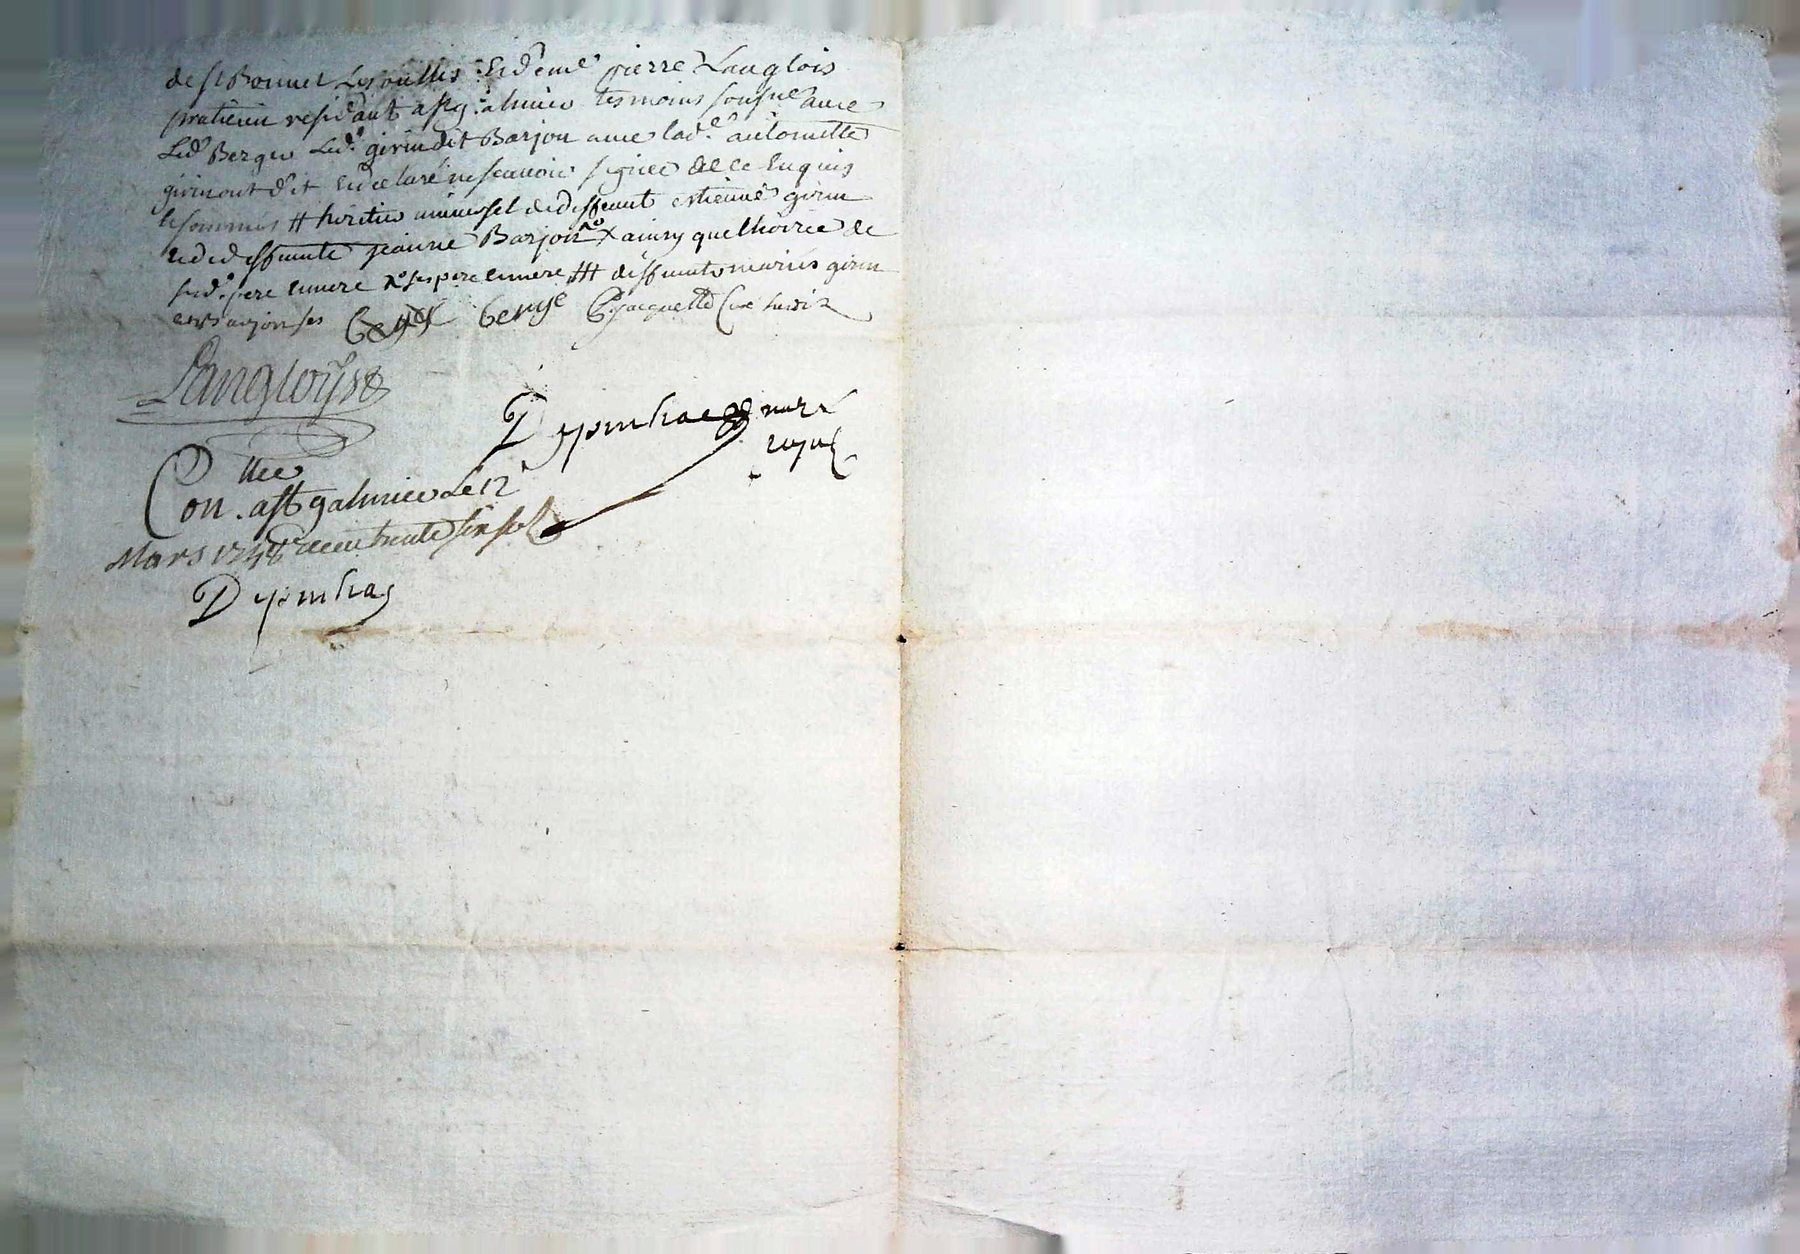 de st Bonnet Les oulles : Et de me pierre Langlois
praticien residant a st galmier tesmoins sousnes avec
Led. Berger Led. girin dit Barjon avec lad.e antoinette
girin ont dit Et declaré ne scavoir signer de ce Enquis
Et sommés # heritier universel dud deffunt estienne girin
deffunte jeanne Barjon X ainsy que lhoirie de
sesd. pere Et mere ses pere Et mere ## deffunts mariés girin
et Barjon ses Berger jacquette
Langloys
Depinhac nore
royal
Con.llée a st galmier Le 12
Mars 1748 Reçu trente six sols
Depinhac